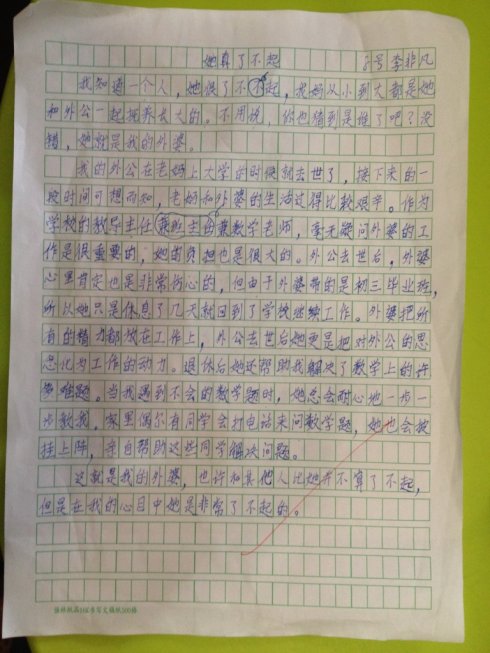 她真了不起 8号 李非凡
我知道一个人，她很了不起，我妈从小到大都是她
和外公一起抚养长大的。不用说，你也猜到是谁了吧？没
错，她就是我的外婆。
我的外公在老妈上大学的时候就去世了，接下来的一
段时间可想而知，老妈和外婆的生活过得比较艰辛。作为
学校的教导主任兼班主任兼数学老师，毫无疑问外婆的工
作是很重要的，她的负担也是很大的。外公去世后，外婆
心里肯定也是非常伤心的，但由于外婆带的是初三毕业班，
所以她只是休息了几天就回到了学校继续工作。外婆把所
有的精力都放在工作上，外公去世后她更是把对外公的思
念化为工作的动力。退休后她还帮助我解决了数学上的许
多难题。当我遇到不会的数学题时，她总会耐心地一步一
步教我。家里偶尔有同学会打电话来问数学题，她也会披
挂上阵，亲自帮助这些同学解决问题。
这就是我的外婆，也许和其他人比她并不算了不起，
但是在我的心目中她是非常了不起的。